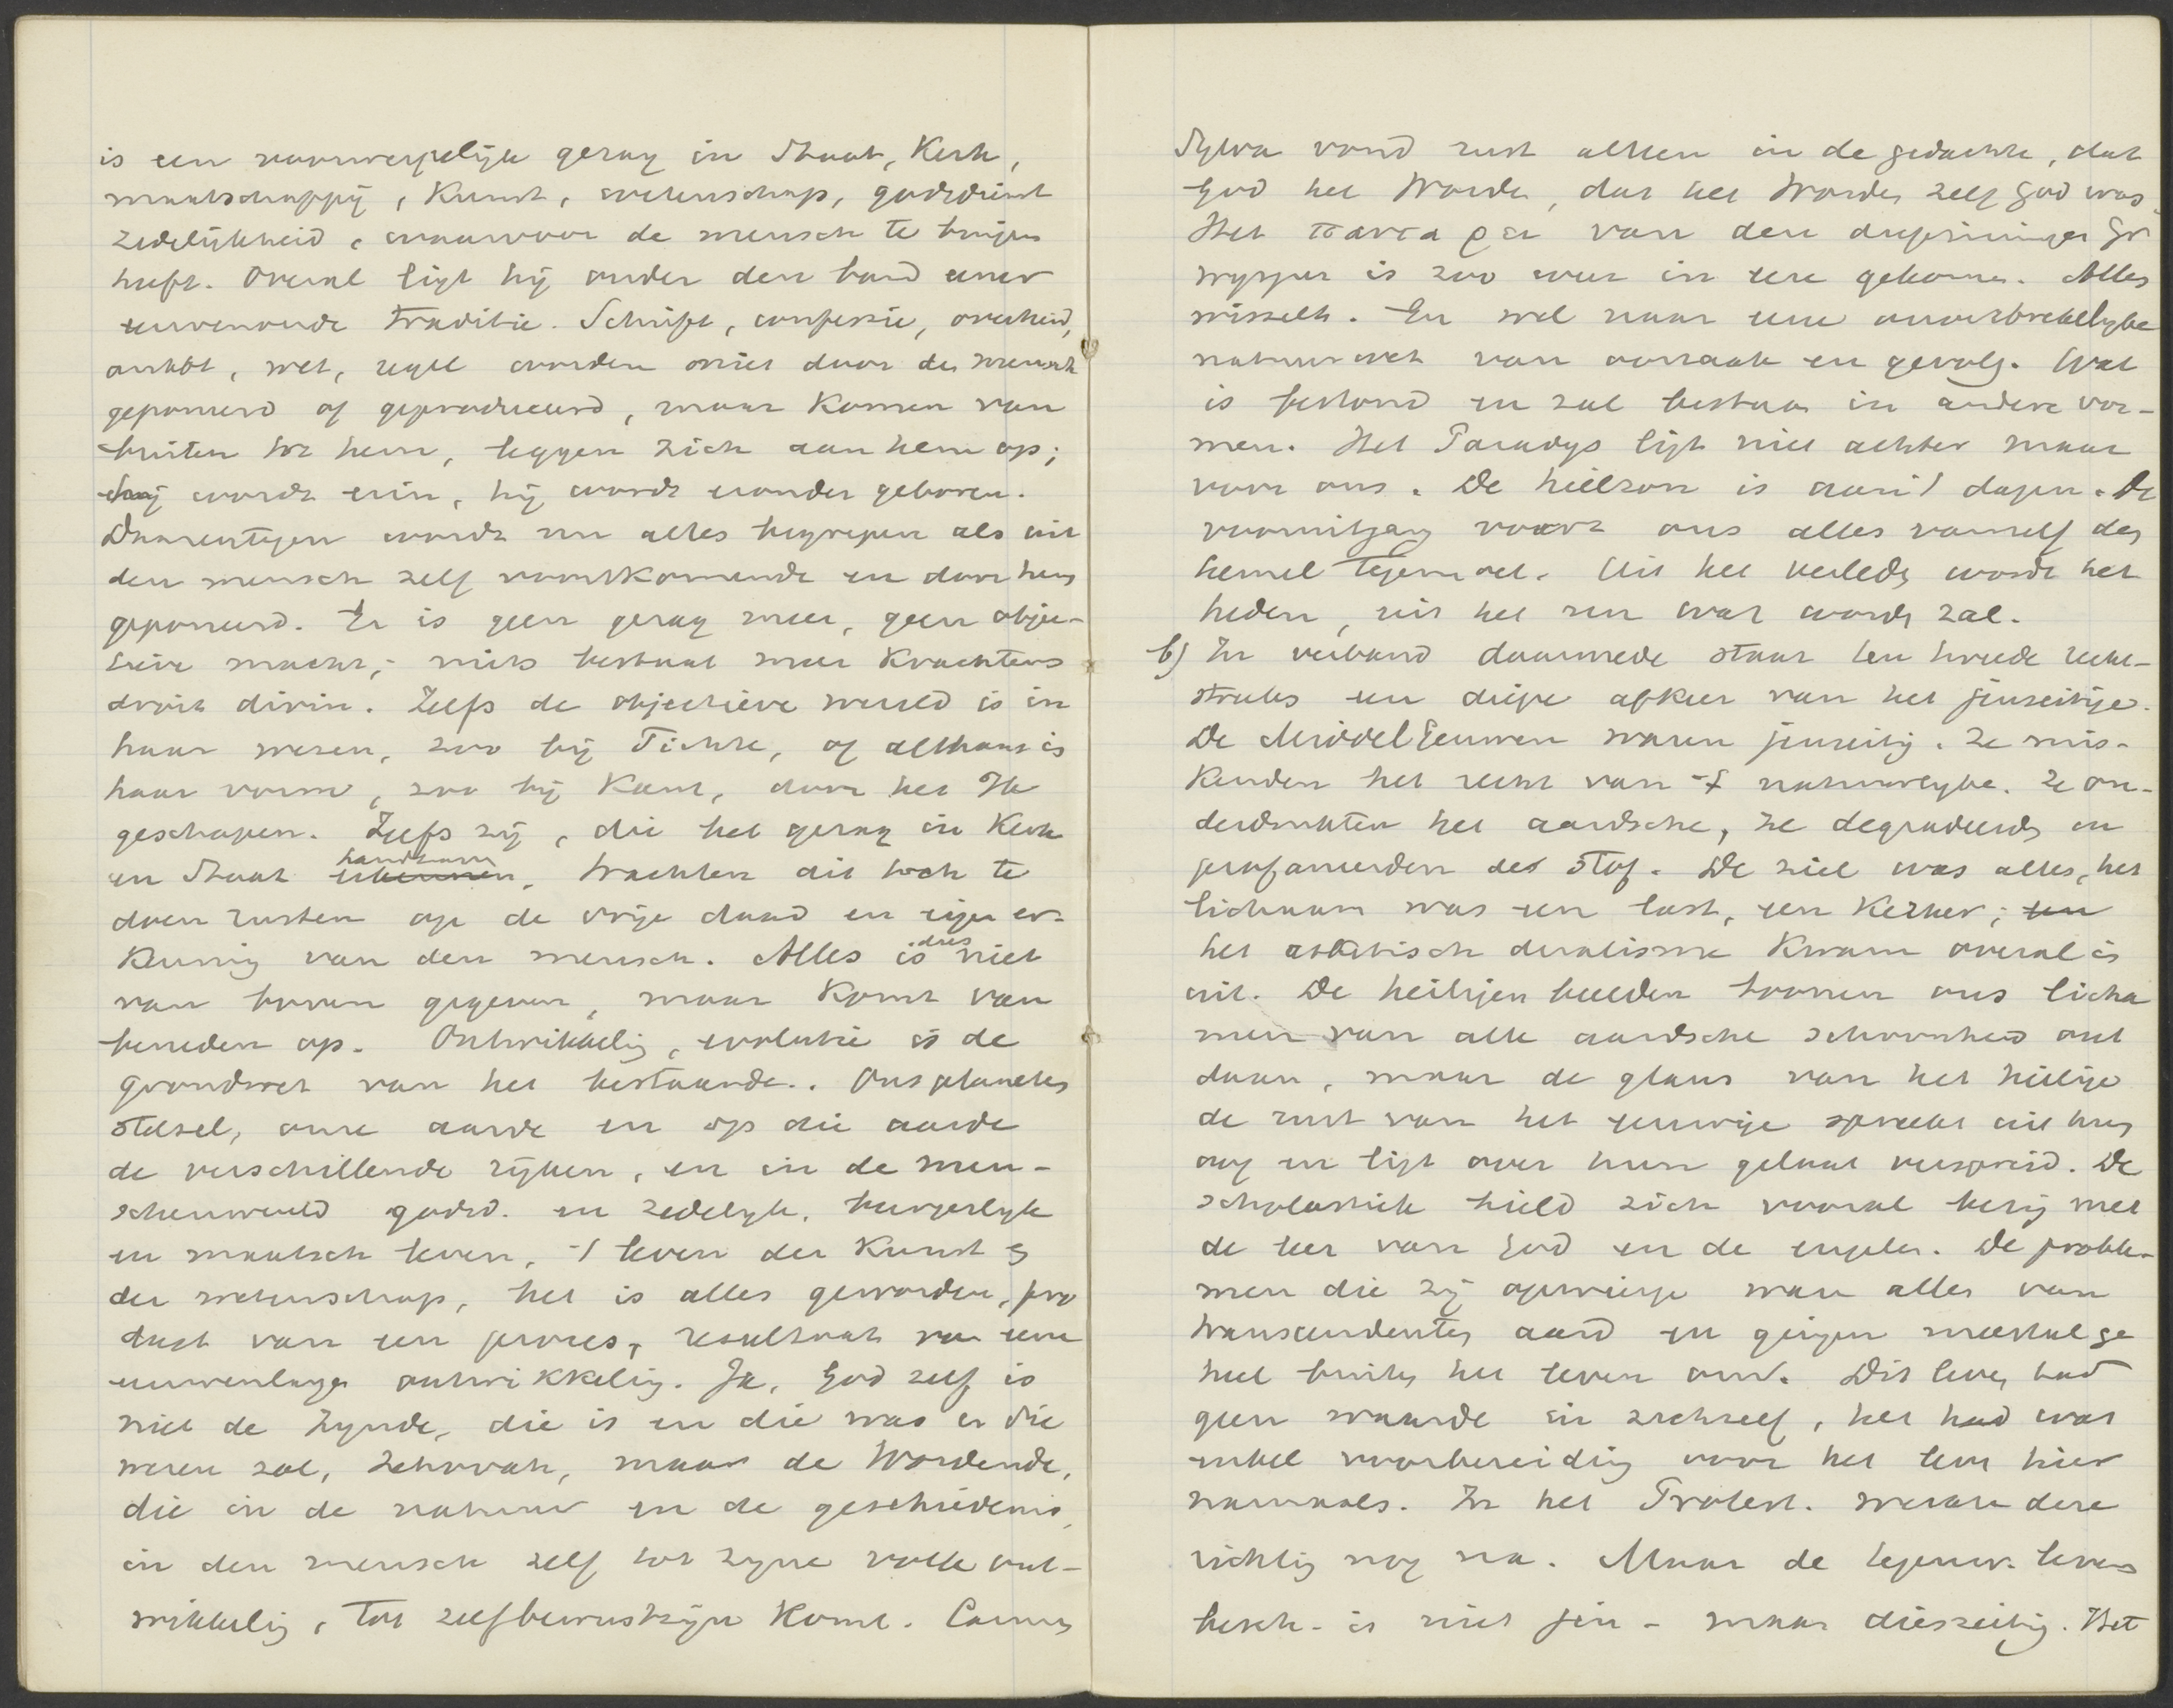 is een voorwerpelijk gezag in Staat, Kerk,
maatschappij, Kunst, wetenschap, godsdienst
zedelijkheid, waarvoor de mensch te buigen
heeft. Overal ligt hij onder den band eener
eeuwenoude traditie. Schrift, confessie, overheid,
ambt, wet, regel worden niet door den mensch
geponeerd of geproduceerd, maar komen van
buiten tot hem, leggen zich aan hem op;
hij wordt erin, hij wordt eronder geboren.
Daarentegen wordt nu alles begrepen als uit
den mensch zelf voortkomende en door hem
geponeerd. Er is geen gezag meer, geen objec-
tieve macht; niets bestaat meer krachtens
droit divin. Zelfs de objectieve wereld is in
haar wezen, zoo bij Fichte, of althans is
haar vorm, zoo bij Kant, door het Ik
geschapen. Zelfs zij, die het gezag in Kerk
en Staat handhaven, trachten dit toch te
doen rusten op de vrije daad en eigen er-
kenning van den mensch. Alles is dus niet
van boven gegeven, maar komt van
beneden op. Ontwikkeling, evolutie is de
grondwet van het bestaande. Ons planeten
stelsel, onze aarde en op die aarde
de verschillende rijken, en in de men-
schenwereld godsd. en zedelijk, burgerlijk
en maatsch leven, 't leven der Kunst en
der wetenschap, het is alles geworden, pro
duct van een proces, resultaat van eene
eeuwenlange ontwikkeling. Ja, God zelf is
niet de Zijnde, die is en die was en die
wezen zal, Jehovah, maar de Wordende,
die in de natuur en de geschiedenis,
in den mensch zelf tot zijne volle ont-
wikkeling, tot zelfbewustzijn komt. Carmen
Sylva vond rust alleen in de gedachte, dat
God het Worden, dat het Worden zelf God was.
Het παντα ρει van den diepzinnigen Gr
wijsgeer is zoo weer in eere gekomen. Alles
wisselt. En wel naar eene onverbrekelijke
natuurwet van oorzaak en gevolg. Wat
is bestond en zal bestaan in andere vor-
men. Het Paradijs ligt niet achter maar
voor ons. De heilzon is aan 't dagen. De
vooruitgang voert ons alles vanzelf den
hemel tegemoet. Uit het verleden wordt het
heden, uit het nu wat worden zal.
b) In verband daarmede staat ten tweede recht-
streeks een diepe afkeer van het jenseitige.
De Middeleeuwen waren jenseitig. Ze mis-
kenden het recht van 't natuurlijke. Ze on-
derdrukten het aardsche, ze degradeerden en
profaneerden de stof. De ziel was alles, het
lichaam was een last, een kerker; en
het ascetisch dualisme kwam overal in
uit. De heiligen beelden toonen ons licha
men van alle aardsche schoonheid ont
daan, maar de glans van het heilige
de rust van het eeuwige spreekt uit hun
oog en ligt over hun gelaat verspreid. De
scholastiek hield zich vooral bezig met
de leer van God en de engelen. De proble-
men die zij opwierp waren alle van
transcendenten aard en gingen meestal ge
heel buiten het leven om. Dit leven had
geen waarde in zichzelf, het had was
enkel voorbereiding voor het leven hier
namaals. In het Protest. werkte deze
richting nog na. Maar de tegenw. levens
besch. is niet jen- maar dieszeitig. Het